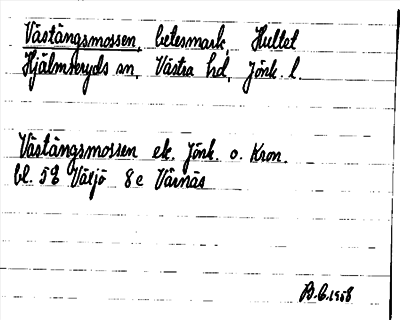 Västängsmossen, betesmark, Hultet
Hjälmseryds sn, Västra hd, Jönk. l.
Västängsmossen ek. Jönk. o. Kron.
bl. 58 Växjö 8 e Värnäs
B.G. 1958